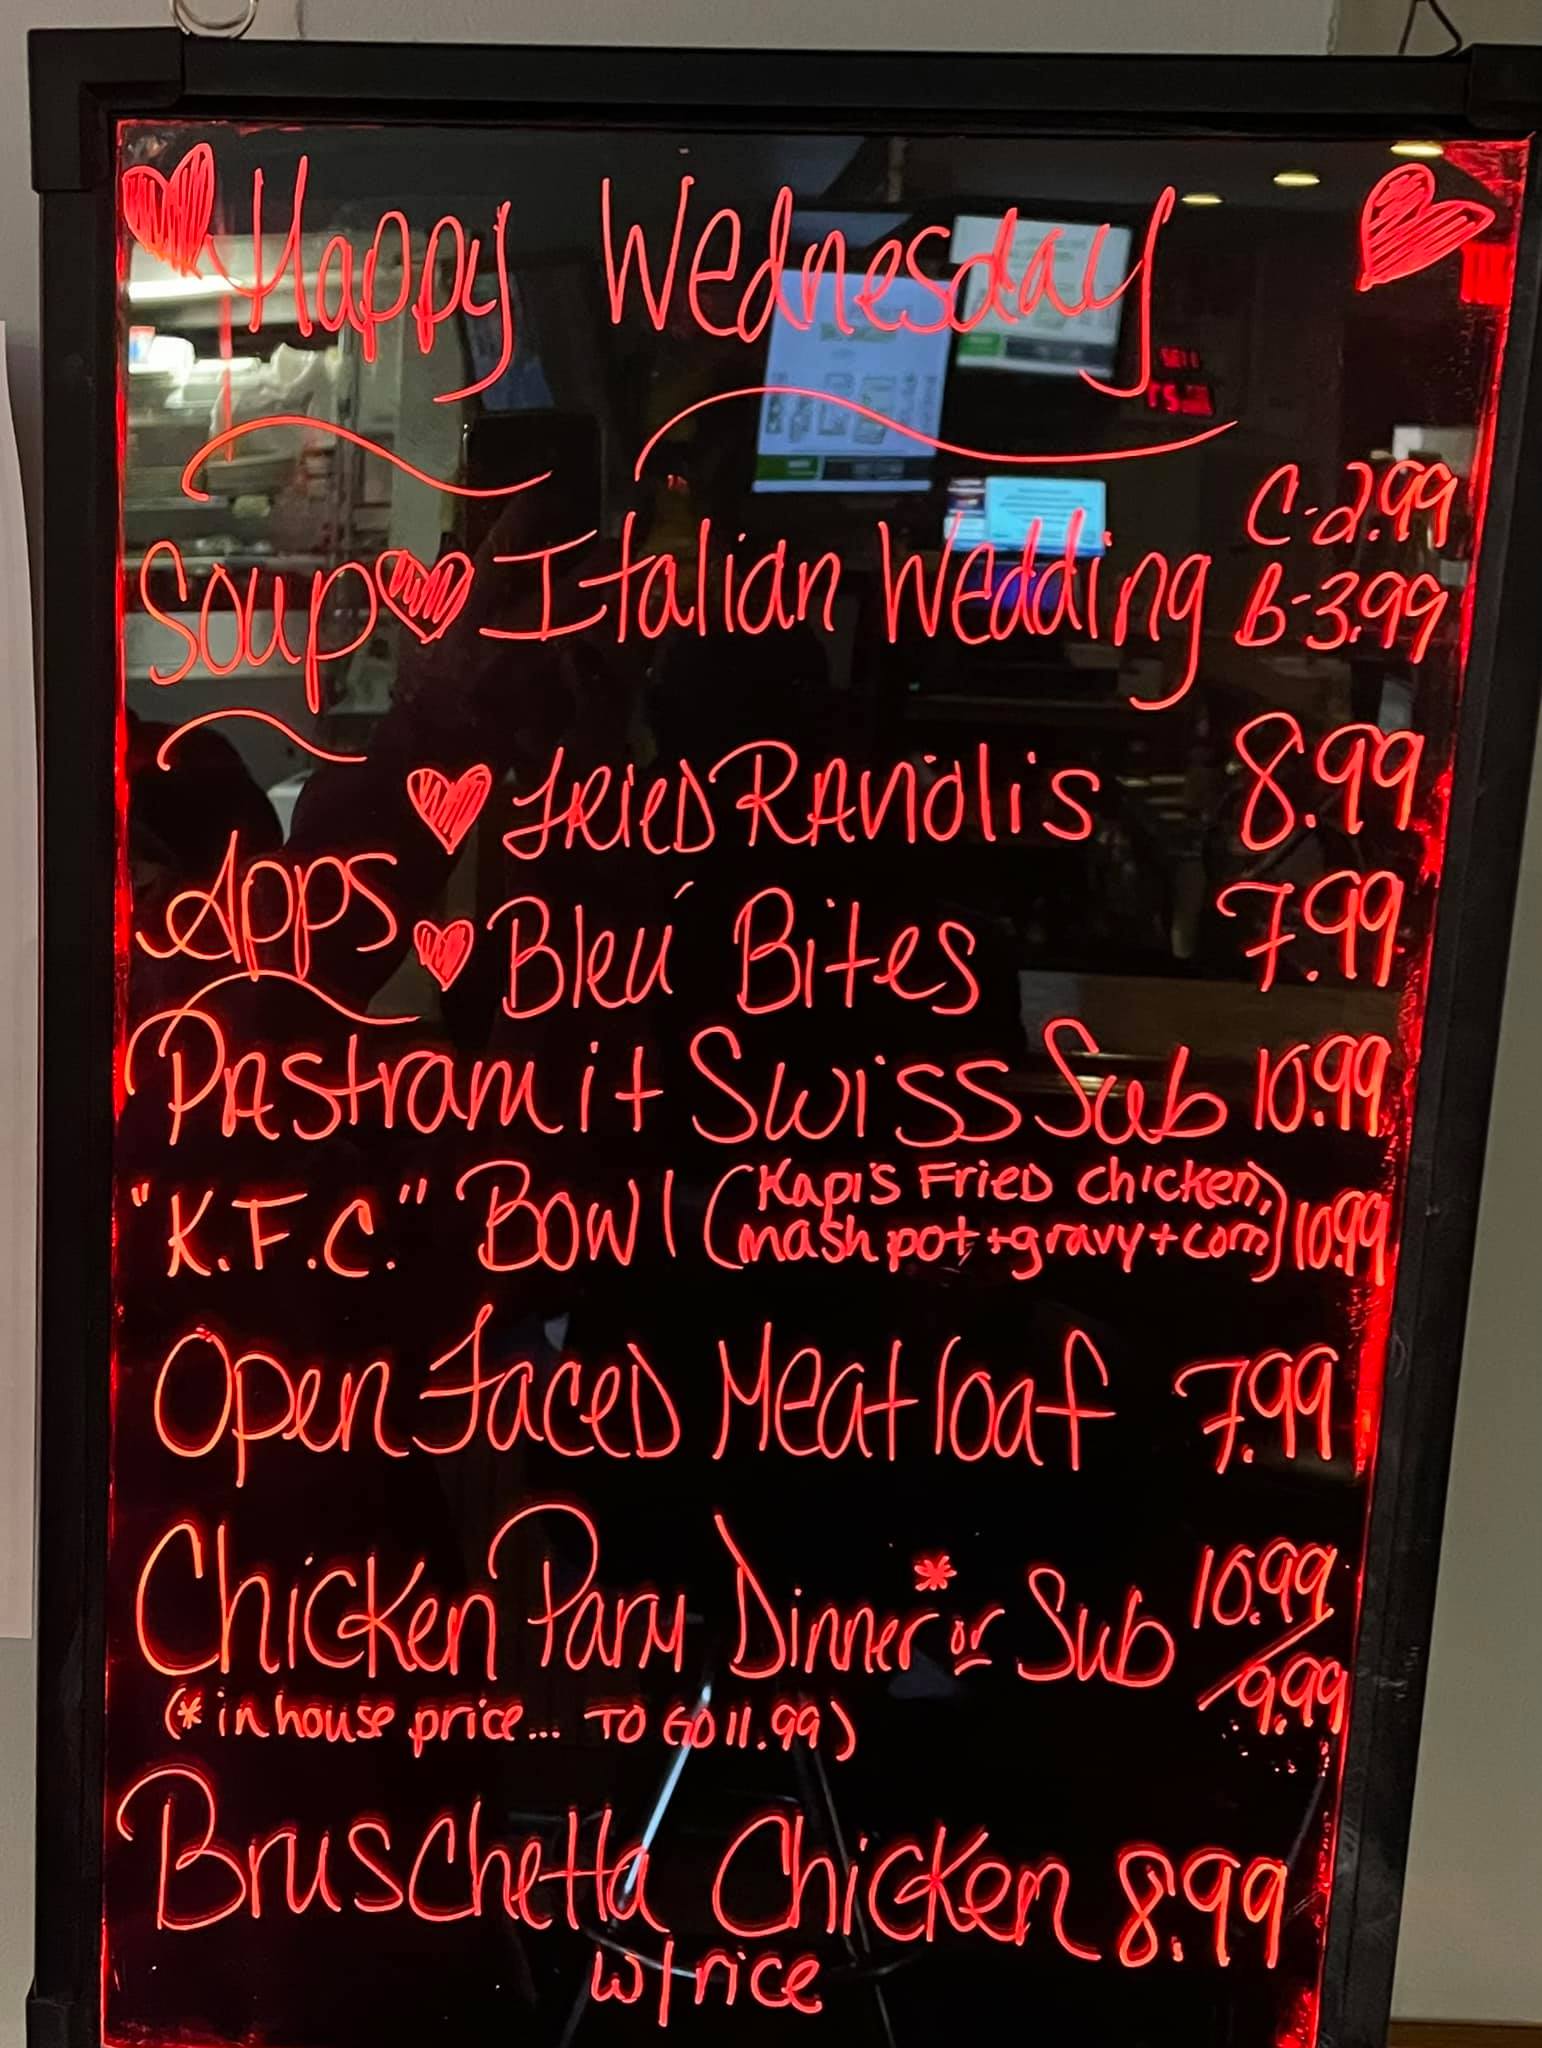 Happy Wednesday
Soup Italian Wedding C-2.99
B-3.99
Fried Raviolis 8.99
Apps
Bleu Bites 7.99
Pastrami + Swiss Sub 10.99
"K.F.C." Bowl (Kapi's Fried Chicken,
mash pot + gravy + corn) 10.99
Open Faced Meatloaf 7.99
Chicken Parm Dinner* or Sub 10.99
/9.99
(* in house price... TO GO 11.99)
Bruschetta Chicken 8.99
w/rice